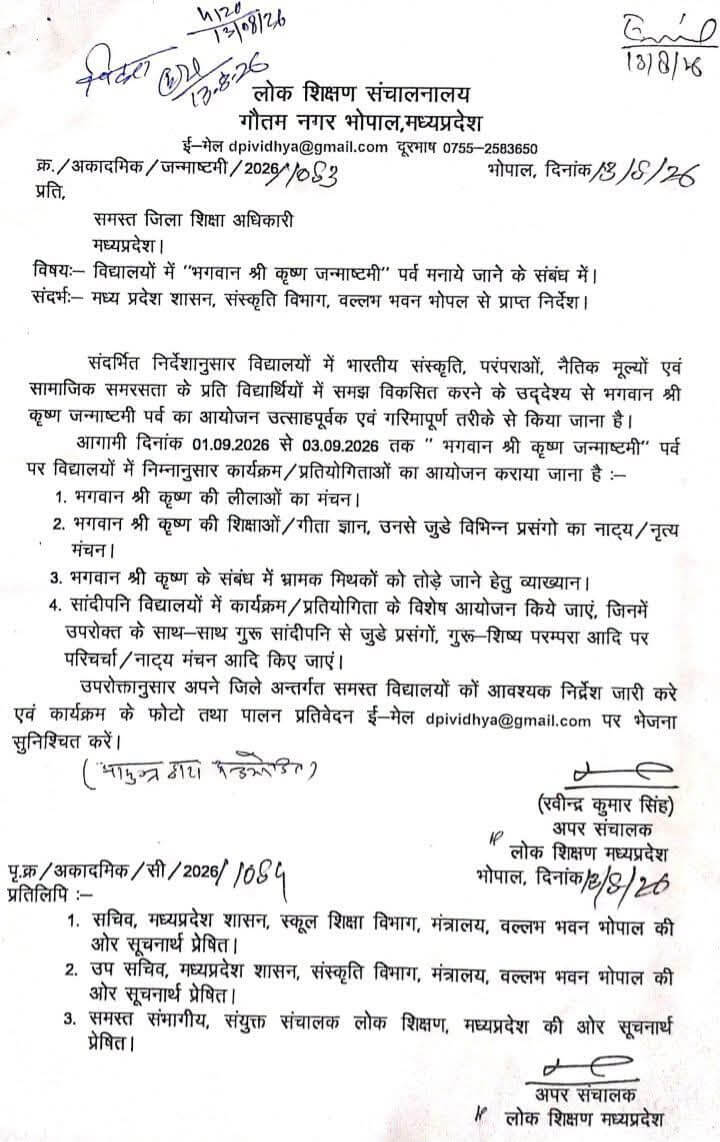 4120
13/08/26
13.8.26
13/8/26
लोक शिक्षण संचालनालय
गौतम नगर भोपाल,मध्यप्रदेश
ई–मेल dpividhya@gmail.com दूरभाष 0755–2583650
क्र./अकादमिक/जन्माष्टमी/2026/1083 भोपाल, दिनांक 13/8/26
प्रति,
समस्त जिला शिक्षा अधिकारी
मध्यप्रदेश।
विषयः– विद्यालयों में "भगवान श्री कृष्ण जन्माष्टमी" पर्व मनाये जाने के संबंध में।
संदर्भः– मध्य प्रदेश शासन, संस्कृति विभाग, वल्लभ भवन भोपल से प्राप्त निर्देश।
संदर्भित निर्देशानुसार विद्यालयों में भारतीय संस्कृति, परंपराओं, नैतिक मूल्यों एवं
सामाजिक समरसता के प्रति विद्यार्थियों में समझ विकसित करने के उद्देश्य से भगवान श्री
कृष्ण जन्माष्टमी पर्व का आयोजन उत्साहपूर्वक एवं गरिमापूर्ण तरीके से किया जाना है।
आगामी दिनांक 01.09.2026 से 03.09.2026 तक " भगवान श्री कृष्ण जन्माष्टमी" पर्व
पर विद्यालयों में निम्नानुसार कार्यक्रम/प्रतियोगिताओं का आयोजन कराया जाना है :–
1. भगवान श्री कृष्ण की लीलाओं का मंचन।
2. भगवान श्री कृष्ण की शिक्षाओं/गीता ज्ञान, उनसे जुडे विभिन्न प्रसंगो का नाट्य/नृत्य
मंचन।
3. भगवान श्री कृष्ण के संबंध में भ्रामक मिथकों को तोड़े जाने हेतु व्याख्यान।
4. सांदीपनि विद्यालयों में कार्यक्रम/प्रतियोगिता के विशेष आयोजन किये जाएं, जिनमें
उपरोक्त के साथ–साथ गुरू सांदीपनि से जुडे प्रसंगों, गुरू–शिष्य परम्परा आदि पर
परिचर्चा/नाट्य मंचन आदि किए जाएं।
उपरोक्तानुसार अपने जिले अन्तर्गत समस्त विद्यालयों कों आवश्यक निर्देश जारी करे
एवं कार्यक्रम के फोटो तथा पालन प्रतिवेदन ई–मेल dpividhya@gmail.com पर भेजना
सुनिश्चित करें।
(आयुक्त द्वारा अनुमोदित)
(रवीन्द्र कुमार सिंह)
अपर संचालक
लोक शिक्षण मध्यप्रदेश
पृ.क्र/अकादमिक/सी/2026/1084 भोपाल, दिनांक 13/8/26
प्रतिलिपि :–
1. सचिव, मध्यप्रदेश शासन, स्कूल शिक्षा विभाग, मंत्रालय, वल्लभ भवन भोपाल की
ओर सूचनार्थ प्रेषित।
2. उप सचिव, मध्यप्रदेश शासन, संस्कृति विभाग, मंत्रालय, वल्लभ भवन भोपाल की
ओर सूचनार्थ प्रेषित।
3. समस्त संभागीय, संयुक्त संचालक लोक शिक्षण, मध्यप्रदेश की ओर सूचनार्थ
प्रेषित।
अपर संचालक
लोक शिक्षण मध्यप्रदेश